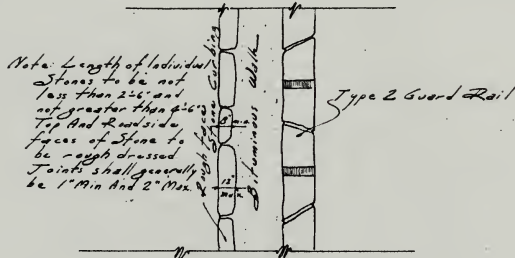 Note: Length of Individual
Stones to be not
less than 2'-6" and
not greater than 4'-6"
Top And Roadside
faces of Stone to
be rough dressed
Joints shall generally
be 1" Min And 2" Max.
Rough faced
Stone Curbing
8" min.
12"
Max
Bituminous Walk
Type 2 Guard Rail